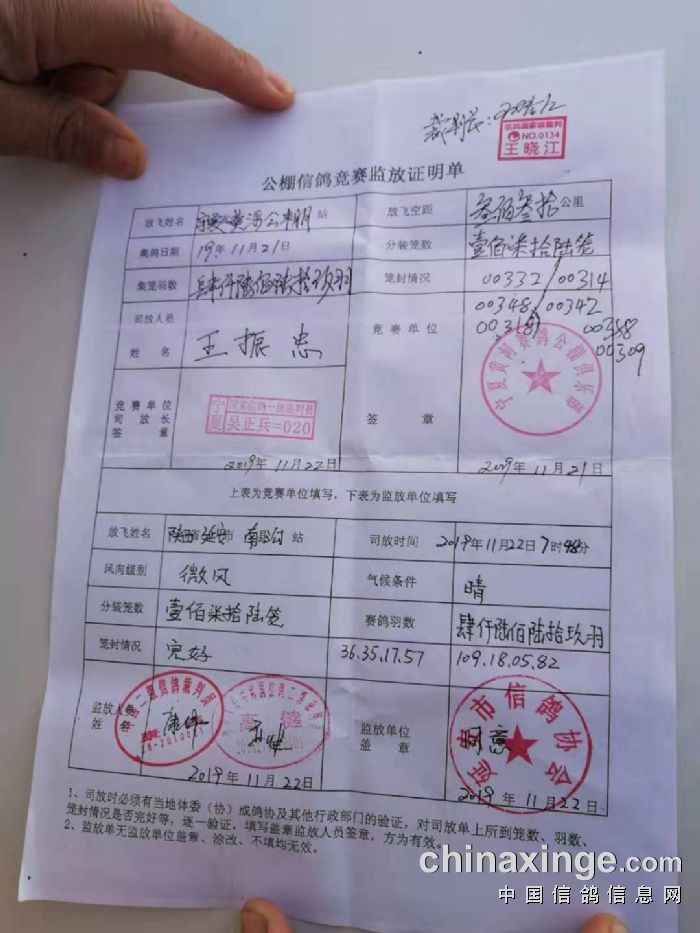 裁判长：王晓江
信鸽国家级裁判
NO.0134
王晓江
公棚信鸽竞赛监放证明单
放飞姓名 宁夏黄河公棚 站 放飞空距 叁佰叁拾公里
集鸽日期 19年11月21日 分装笼数 壹佰柒拾陆笼
集笼羽数 肆仟陆佰陆拾玖羽 笼封情况 00332/00314
00348/00342
00318 00358
00309
司放人员
姓 名 王振忠 竞赛单位
宁夏黄河赛鸽公棚俱乐部
竞赛单位
司放长
签 章 宁夏 国家信鸽一级裁判员
吴正兵=020 签 章
2019年11月22日 2019年11月21日
上表为竞赛单位填写，下表为监放单位填写
放飞姓名 陕西省延安市 站 司放时间 2019年11月22日7时48分
风向级别 微风 气候条件 晴
分装笼数 壹佰柒拾陆笼 赛鸽羽数 肆仟陆佰陆拾玖羽
笼封情况 完好 36.35.17.57 109.18.05.82
监放人员
姓 名 二级信鸽裁判员 高健 监放单位
盖 章 同意
延安市信鸽协会
2019年11月22日 2019年11月22日
1、司放时必须有当地体委（协）或鸽协及其他行政部门的验证，对司放单上所到笼数、羽数、
笼封情况是否完好等，逐一验证，填写盖章监放人员签章，方为有效。
2、监放单无监放单位盖章、涂改、不填均无效。
chinaxinge.com
中国信鸽信息网